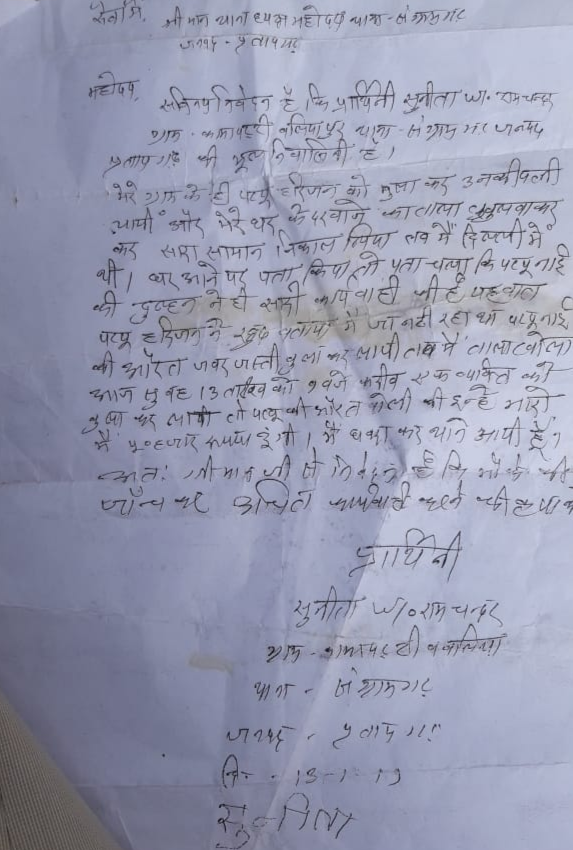 सेवा में,
श्रीमान थानाध्यक्ष महोदय थाना - संग्रामगढ़
जनपद - प्रतापगढ़
महोदय,
सविनय निवेदन है कि प्रार्थिनी सुनीता w/o रामचन्दर
ग्राम - बलियापुर थाना - संग्रामगढ़ जनपद
प्रतापगढ़ की मूल निवासिनी है।
मेरे ग्राम के ही पप्पू हरिजन को बुला कर उनकी पत्नी
लायी और मेरे घर के दरवाजे का ताला खुलवाकर
कर सारा सामान निकाल लिया तब मैं दिल्ली में
थी। घर आने पर पता किया तो पता चला कि पप्पू नाई
की दुल्हन ने ही सारी कार्यवाही की है यह बात
पप्पू हरिजन ने खुद बताया मैं जा नही रहा था पप्पू नाई
की औरत जबरजस्ती बुला कर लायी तब मैं ताला खोला
आज सुबह 13 तारीख को 9 बजे करीब एक व्यक्ति को
बुला कर लायी तो पप्पू की औरत बोली की इन्हे मारो
मैं हजार रूपया दूंगी। मैं घबरा कर थाने आयी हूँ।
अतः श्रीमान जी से निवेदन है कि मौके की
जाँच कर उचित कार्यवाही करने की कृपा
प्रार्थिनी
सुनीता w/o राम चन्दर
ग्राम -
थाना - संग्रामगढ़
जनपद - प्रतापगढ़
13-1-19
सुनीता